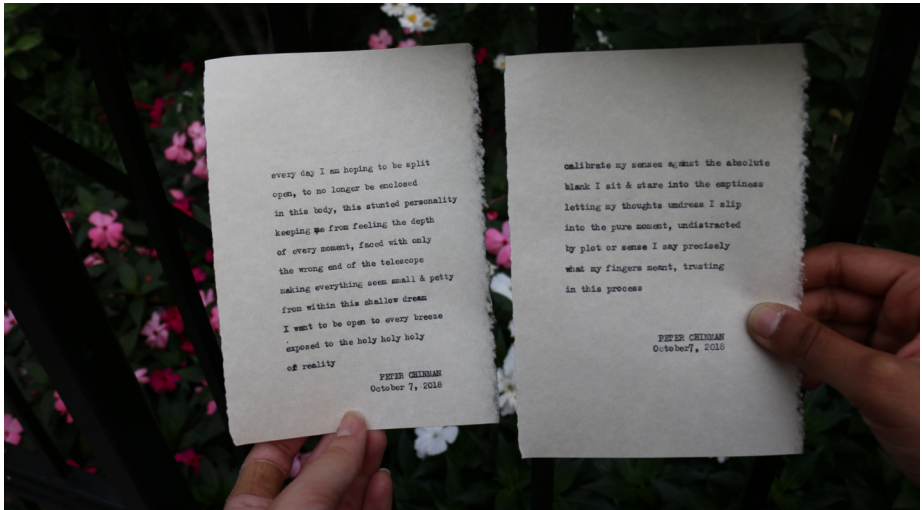 every day I am hoping to be split
open, to no longer be enclosed
in this body, this stunted personality
keeping me from feeling the depth
of every moment, faced with only
the wrong end of the telescope
making everything seem small & petty
from within this shallow dream
I want to be open to every breeze
exposed to the holy holy holy
of reality
PETER CHINMAN
October 7, 2018
calibrate my senses against the absolute
blank I sit & stare into the emptiness
letting my thoughts undress I slip
into the pure moment, undistracted
by plot or sense I say precisely
what my fingers meant, trusting
in this process
PETER CHINMAN
October7, 2018